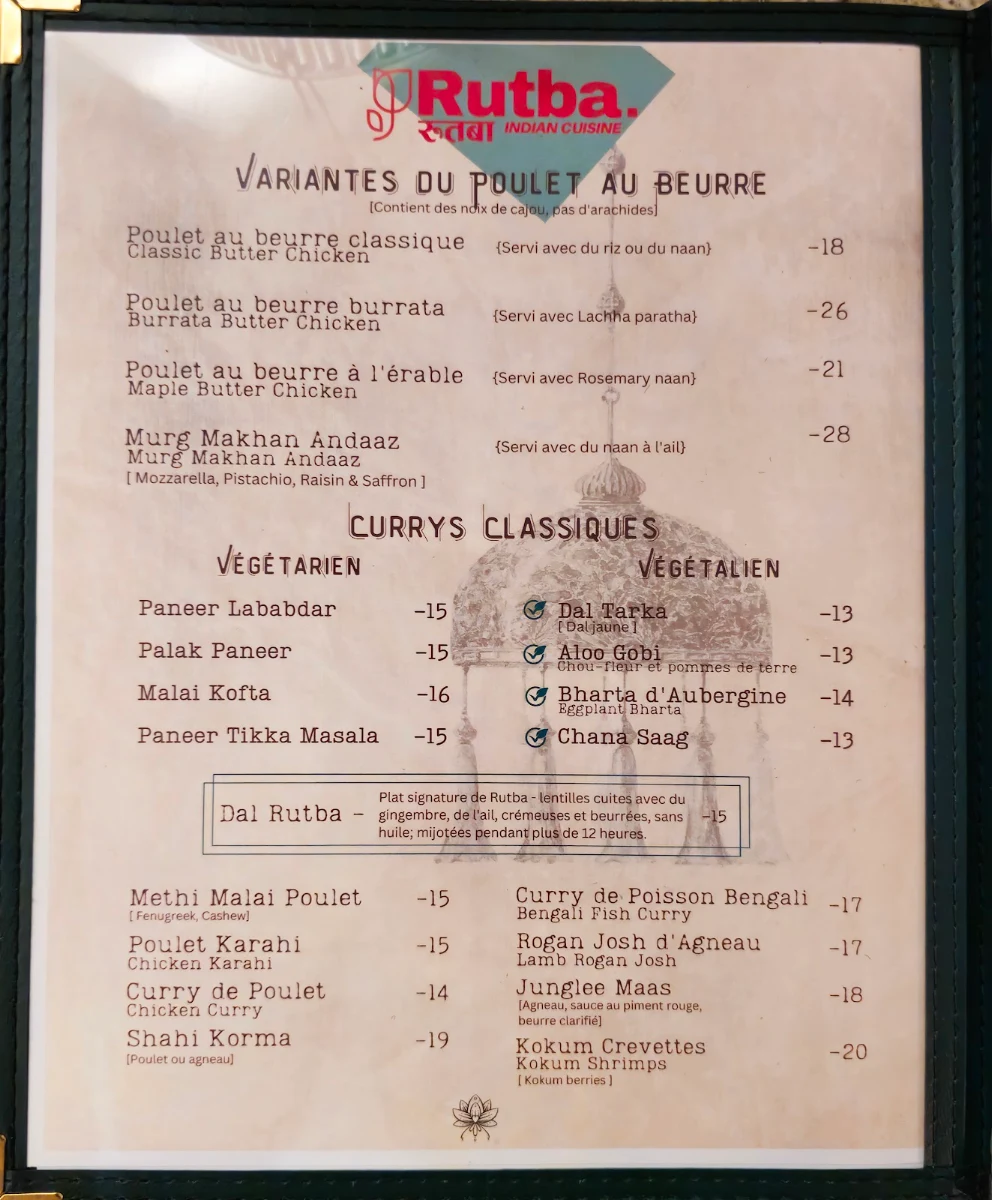 Rutba.
रूतबा INDIAN CUISINE
VARIANTES DU POULET AU BEURRE
[Contient des noix de cajou, pas d'arachides]
Poulet au beurre classique {Servi avec du riz ou du naan} -18
Classic Butter Chicken
Poulet au beurre burrata {Servi avec Lachha paratha} -26
Burrata Butter Chicken
Poulet au beurre à l'érable {Servi avec Rosemary naan} -21
Maple Butter Chicken
Murg Makhan Andaaz {Servi avec du naan à l'ail} -28
Murg Makhan Andaaz
[ Mozzarella, Pistachio, Raisin & Saffron ]
CURRYS CLASSIQUES
VÉGÉTARIEN
Paneer Lababdar -15
Palak Paneer -15
Malai Kofta -16
Paneer Tikka Masala -15
VÉGÉTALIEN
Dal Tarka -13
[ Dal jaune ]
Aloo Gobi -13
Chou-fleur et pommes de terre
Bharta d'Aubergine -14
Eggplant Bharta
Chana Saag -13
Dal Rutba -
Plat signature de Rutba - lentilles cuites avec du
gingembre, de l'ail, crémeuses et beurrées, sans -15
huile; mijotées pendant plus de 12 heures.
Methi Malai Poulet -15
[ Fenugreek, Cashew]
Poulet Karahi -15
Chicken Karahi
Curry de Poulet -14
Chicken Curry
Shahi Korma -19
[Poulet ou agneau]
Curry de Poisson Bengali -17
Bengali Fish Curry
Rogan Josh d'Agneau -17
Lamb Rogan Josh
Junglee Maas -18
[Agneau, sauce au piment rouge,
beurre clarifié]
Kokum Crevettes -20
Kokum Shrimps
[ Kokum berries ]